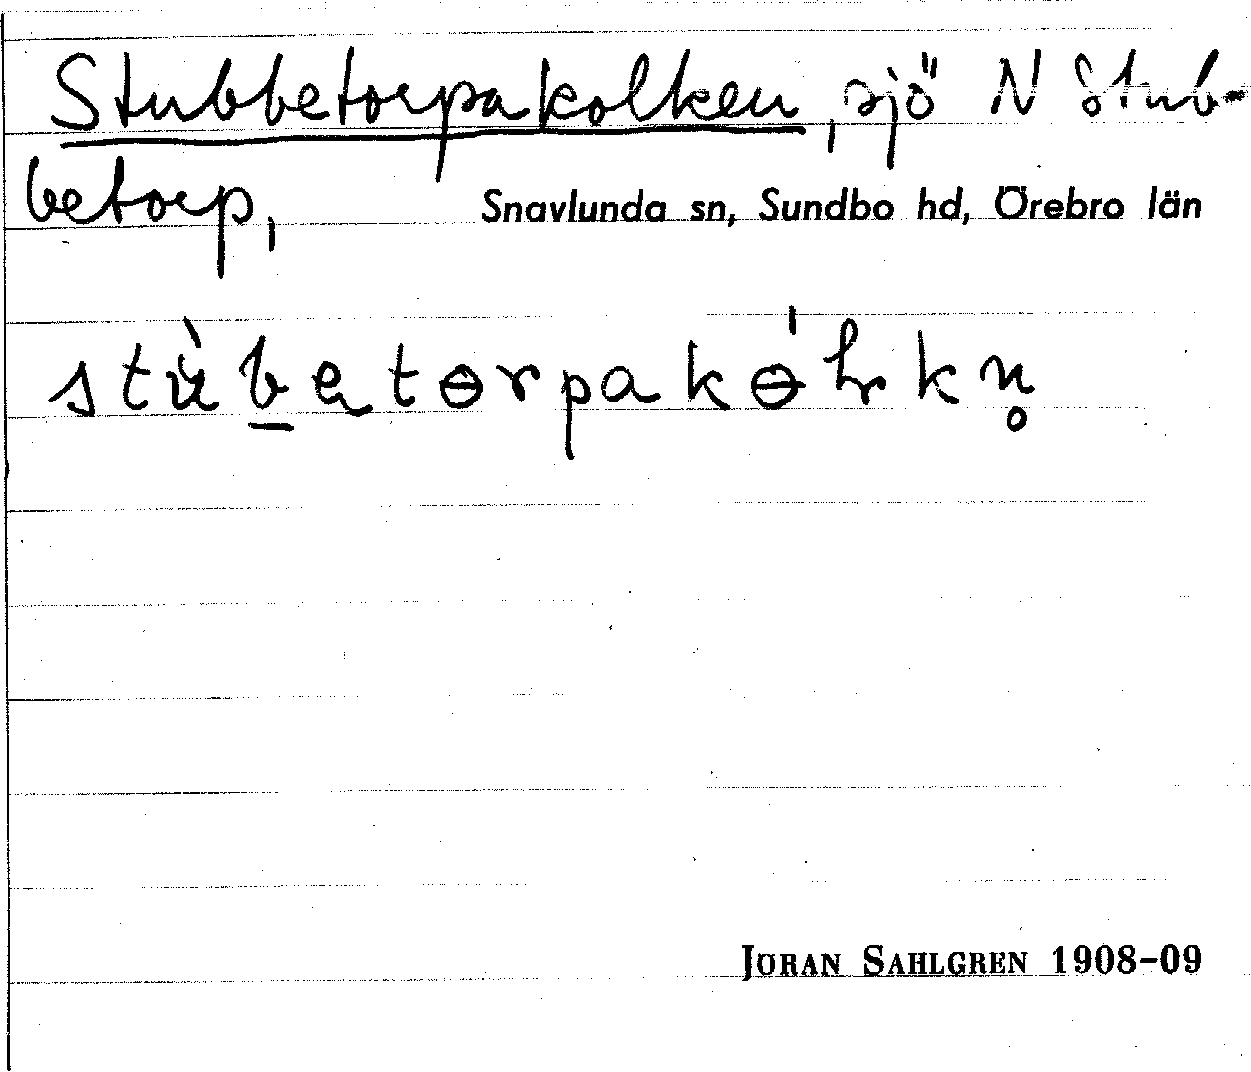 Stubbetorpakolken, sjö N Stub-
betorp, Snavlunda sn, Sundbo hd, Örebro län
stu̇̀b̲etɵrpakɵ́lkn̥
JÖRAN SAHLGREN 1908-09